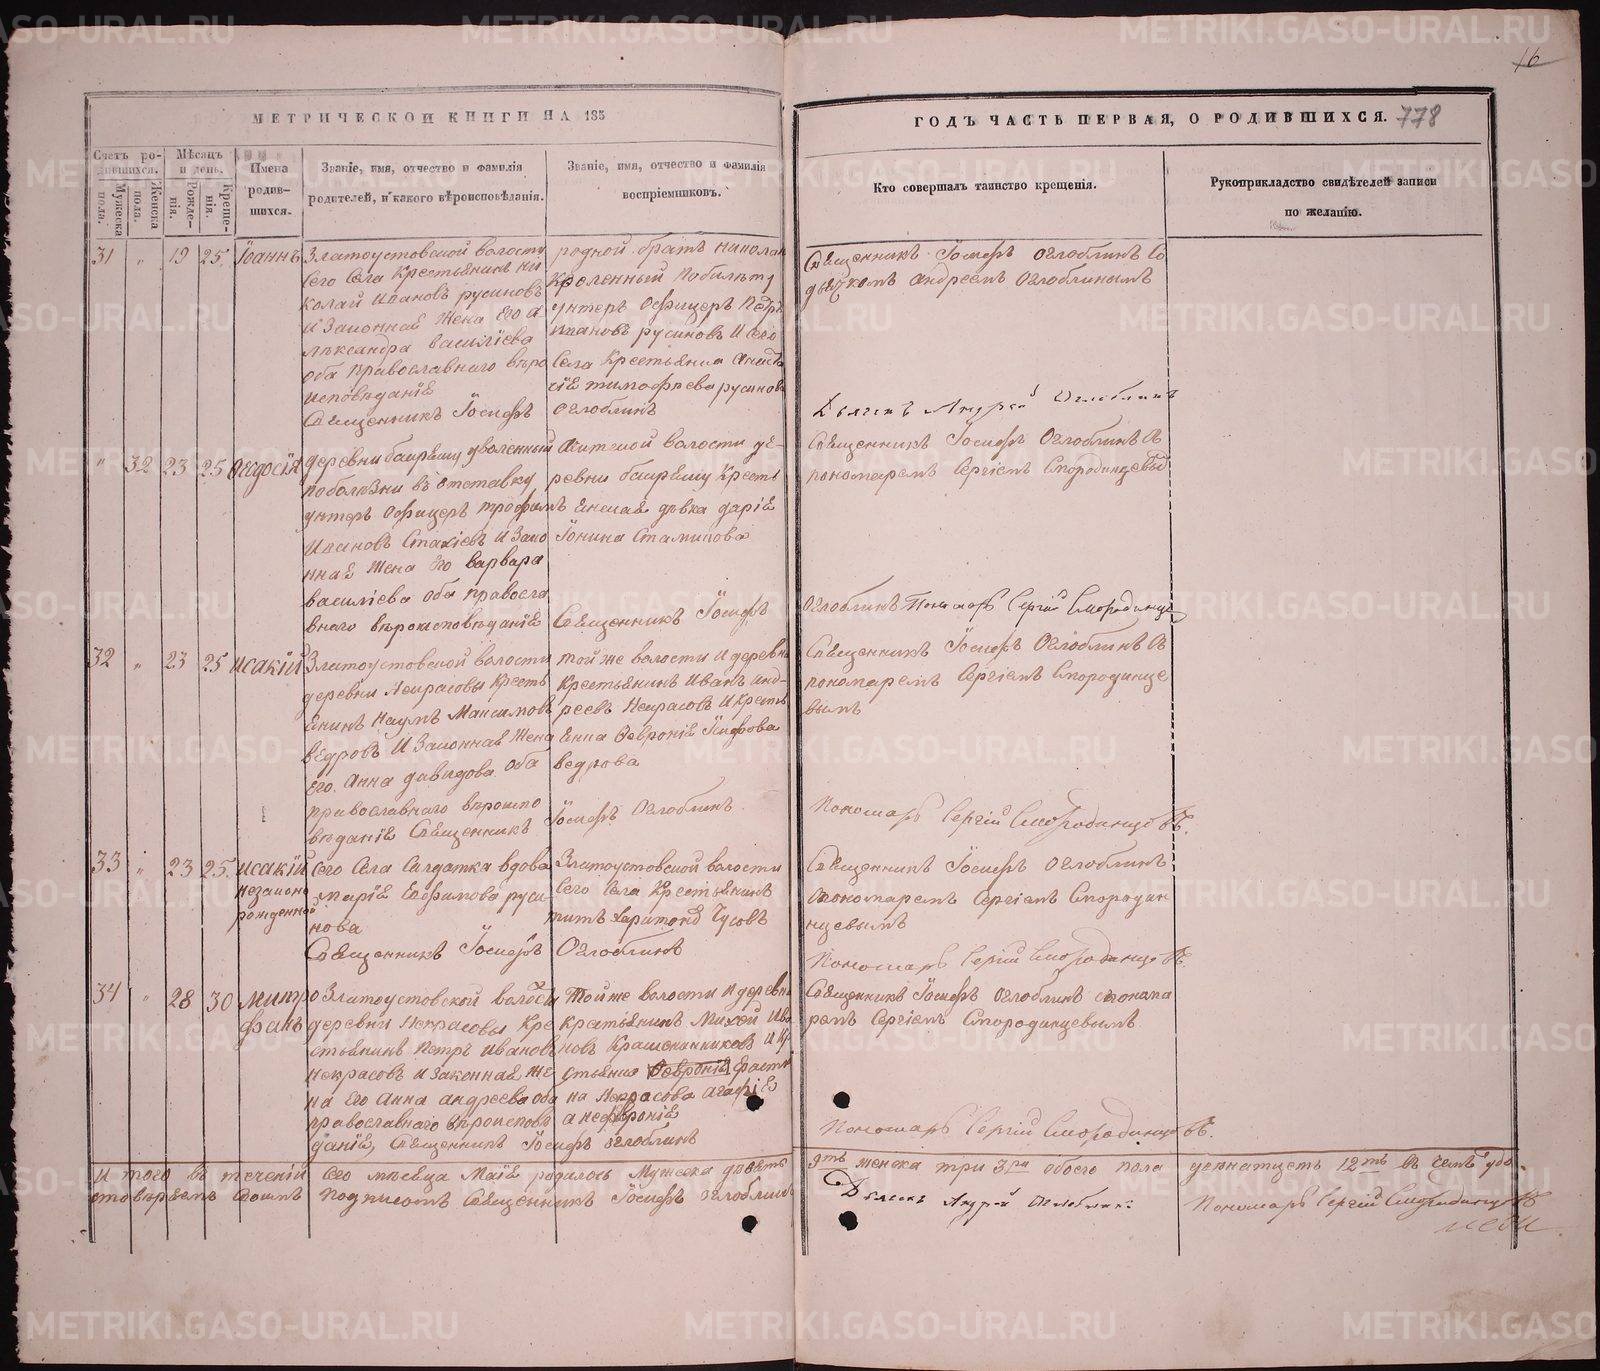 16
МЕТРИЧЕСКОЙ КНИГИ НА 185
ГОДЪ ЧАСТЬ ПЕРВАЯ, О РОДИВШИХСЯ. 778
Счетъ ро-
дившихся.
Мужеска
пола.
Женска
пола.
Мѣсяцъ
и день.
Рожде-
нія.
Креще-
нія.
Имена
родив-
шихся.
Званіе, имя, отчество и фамилія
родителей, и какого вѣроисповѣданія.
Званіе, имя, отчество и фамилія
воспріемниковъ.
Кто совершалъ таинство крещенія.
Рукоприкладство свидѣтелей записи
по желанію.
31 " 19 25 Іоаннъ
Златоустовской волости
сего села крестьянинъ Ни
колай Ивановъ Русиновъ
и законная жена его А
лѣксандра Василіева
оба православнаго вѣро
исповѣданіе
Священникъ Іосифъ
родной братъ
унтеръ офицеръ Петръ
Ивановъ Русиновъ и сего
села крестьянка
тимофѣева русинова
Оглоблинъ
Священникъ Іосифъ Оглоблинъ со
дьячкомъ Андреемъ Оглоблинымъ
Дьячекъ Андрей Оглоблинъ
" 32 23 25 Ѳеодосія
деревни уволенный
по болѣзни въ отставку
унтеръ офицеръ трофимъ
Ивановъ и зако
нная жена его варвара
василіева оба правосла
внаго вѣроисповѣданіе
волости де-
ревни кресть
дѣвка дарія
Іонина
Священникъ Іосифъ
Священникъ Іосифъ Оглоблинъ с
пономаремъ Сергіемъ Смородинцевы
Оглоблинъ Пономарь Сергій Смородинце
32 " 23 25 Исакій
Златоустовской волости
деревни Некрасовы кресть
енинъ Наумъ Максимовъ
ведровъ и законная жена
его Анна давидова оба
православнаго вѣроиспо
вѣданіе Священникъ
той же волости и деревни
крестьенинъ Иванъ Анд-
реевъ Некрасовъ и кресть
енка Ѳевронія
ведрова
Іосифъ Оглоблинъ
Священникъ Іосифъ Оглоблинъ с
пономаремъ Сергіемъ Смородинце
вымъ
Пономарь Сергій Смородинцевъ.
33 " 23 25 Исакій
незаконо
рожденной
сего села салдатка вдова
марія Ефимова руси-
нова
Священникъ Іосифъ
Златоустовской волости
сего села крестьенинъ
титъ Харитоновъ Чусовъ
Оглоблинъ
Священникъ Іосифъ Оглоблинъ
с пономаремъ Сергіемъ Смородин
цевымъ
Пономарь Сергій Смородинцевъ.
34 " 28 30 Митро
фанъ
Златоустовской волости
деревни Некрасовы кре
стьенинъ Петръ Ивановъ
Некрасовъ и законная же
на его Анна андреева оба
православнаго вѣроисповѣ
даніе, Священникъ Іосифъ Оглоблинъ
той же волости и деревни
крестьенинъ Михей Ива
новъ Крашенинниковъ и кр
стьенка Ѳевронія
на Некрасова Агафія
а не ѳевронія
Священникъ Іосифъ Оглоблинъ с понома
ремъ Сергіемъ Смородинцевымъ
Пономарь Сергій Смородинцевъ.
И того въ теченіи сего мѣсяца Маіе родилось Мужеска девять
9ть женска три 3ри обоего пола двенатцеть 12ть въ чемъ удо
стовѣряемъ своимъ подписомъ Священникъ Іосифъ Оглоблинъ
Дьячекъ Андрей Оглоблинъ
Пономарь Сергій Смородинцевъ
METRIKI.GASO-URAL.RU